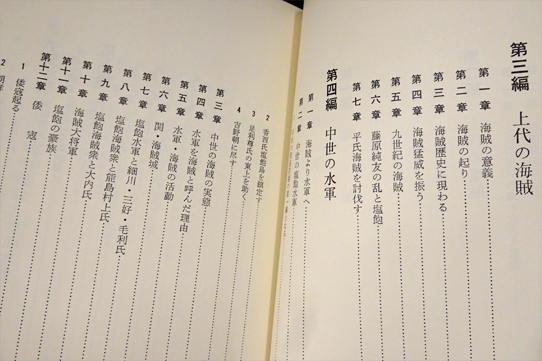 第三編 上代の海賊
第一章 海賊の意義
第二章 海賊の起り
第三章 海賊歴史に現わる
第四章 海賊猛威を振う
第五章 九世紀の海賊
第六章 藤原純友の乱と塩飽
第七章 平氏海賊を討伐す
第四編 中世の水軍
第一章 海賊より水軍へ
第二章 中世の塩飽水軍
2 香西氏塩飽島を鎮定す
3 足利尊氏の東上を助く
4 吉野朝に尽す
第三章 中世の海賊の実態
第四章 水軍を海賊と呼んだ理由
第五章 水軍・海賊の活動
第六章 関・海賊城
第七章 塩飽水軍と細川・三好・毛利氏
第八章 塩飽海賊衆と能島村上氏
第九章 塩飽海賊衆と大内氏
第十章 海賊大将軍
第十一章 塩飽の豪族
第十二章 倭寇
1 倭寇起る
2